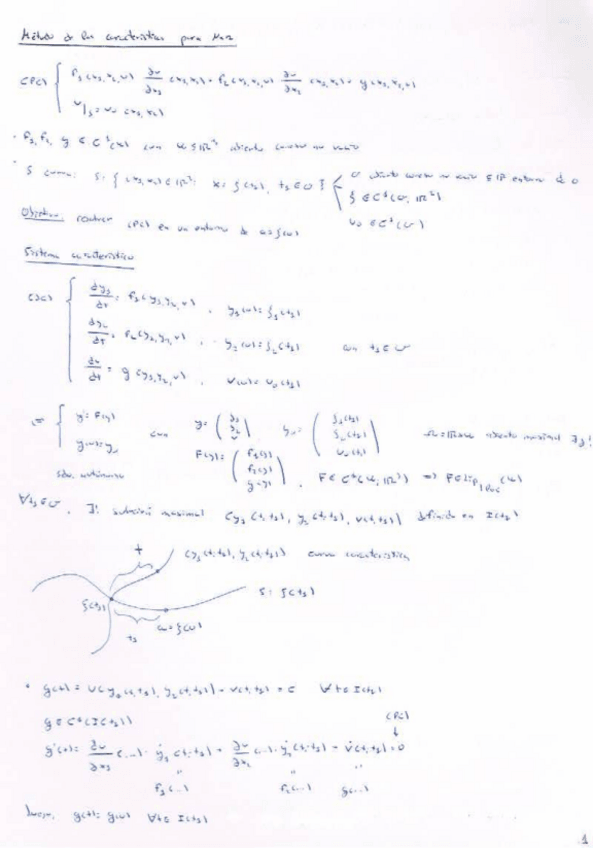 Método de las características para N=2
(PC) { f₁(x₁,x₂,u) ∂u/∂x₁ (x₁,x₂) + f₂(x₁,x₂,u) ∂u/∂x₂ (x₁,x₂) = g(x₁,x₂,u)
u|s = u₀(x₁,x₂)
· f₁, f₂, g ∈ C¹(U) con U ⊆ ℝ³ abierto conexo no vacío
· S curva: S = { (x₁,x₂) ∈ ℝ²: x = ξ(t₁), t₁ ∈ O }
O abierto conexo no vacío ⊆ ℝ entorno de 0
ξ ∈ C¹(O, ℝ²)
u₀ ∈ C¹(O)
Objetivo: resolver (PC) en un entorno de a = ξ(0)
Sistema característico
(SC) { dy₁/dt = f₁(y₁,y₂,v), y₁(0) = ξ₁(t₁)
dy₂/dt = f₂(y₁,y₂,v), y₂(0) = ξ₂(t₁) con t₁ ∈ O
dv/dt = g(y₁,y₂,v), v(0) = u₀(t₁)
≡ { y' = F(y)
y(0) = y₀
con y = (y₁ y₂ v) y₀ = (ξ₁(t₁) ξ₂(t₁) u₀(t₁))
F(y) = (f₁(y) f₂(y) g(y)), F ∈ C¹(U, ℝ³) ⇒ F ∈ Lip loc (U)
sist. autónomo
∀t₁ ∈ O, ∃! solución maximal (y₁(t,t₁), y₂(t,t₁), v(t,t₁)) definida en I(t₁)
t
(y₁(t,t₁), y₂(t,t₁)) curva característica
ξ(t₁)
S: ξ(t₁)
t₁
a = ξ(0)
· g(t) = u(y₁(t,t₁), y₂(t,t₁)) - v(t,t₁) = 0 ∀t ∈ I(t₁)
g ∈ C¹(I(t₁))
(PC)
g'(t) = ∂u/∂x₁ (...) · ẏ₁(t,t₁) + ∂u/∂x₂ (...) · ẏ₂(t,t₁) - v̇(t,t₁) = 0
f₁(...) f₂(...) g(...)
Luego, g(t) = g(0) ∀t ∈ I(t₁)
1